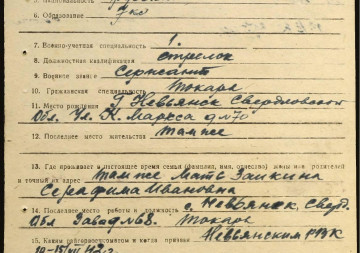 6. Образование 7 кл
7. Военно-учетная специальность 1
8. Должностная квалификация стрелок
9. Военное звание Сержант
10. Гражданская специальность Токарь
11. Место рождения г Невьянск Свердловской
Обл. Ул. К. Маркса д № 70
12. Последнее место жительства там же
13. Где проживает в настоящее время семья (фамилия, имя, отчество) жены или родителей
и точный их адрес там же Мать Заикина
Серафима Ивановна
14. Последнее место работы и должность г. Невьянск, Сверд.
Обл Завод № 68. Токарь
15. Каким райгорвоенкоматом и когда призван Невьянским РВК